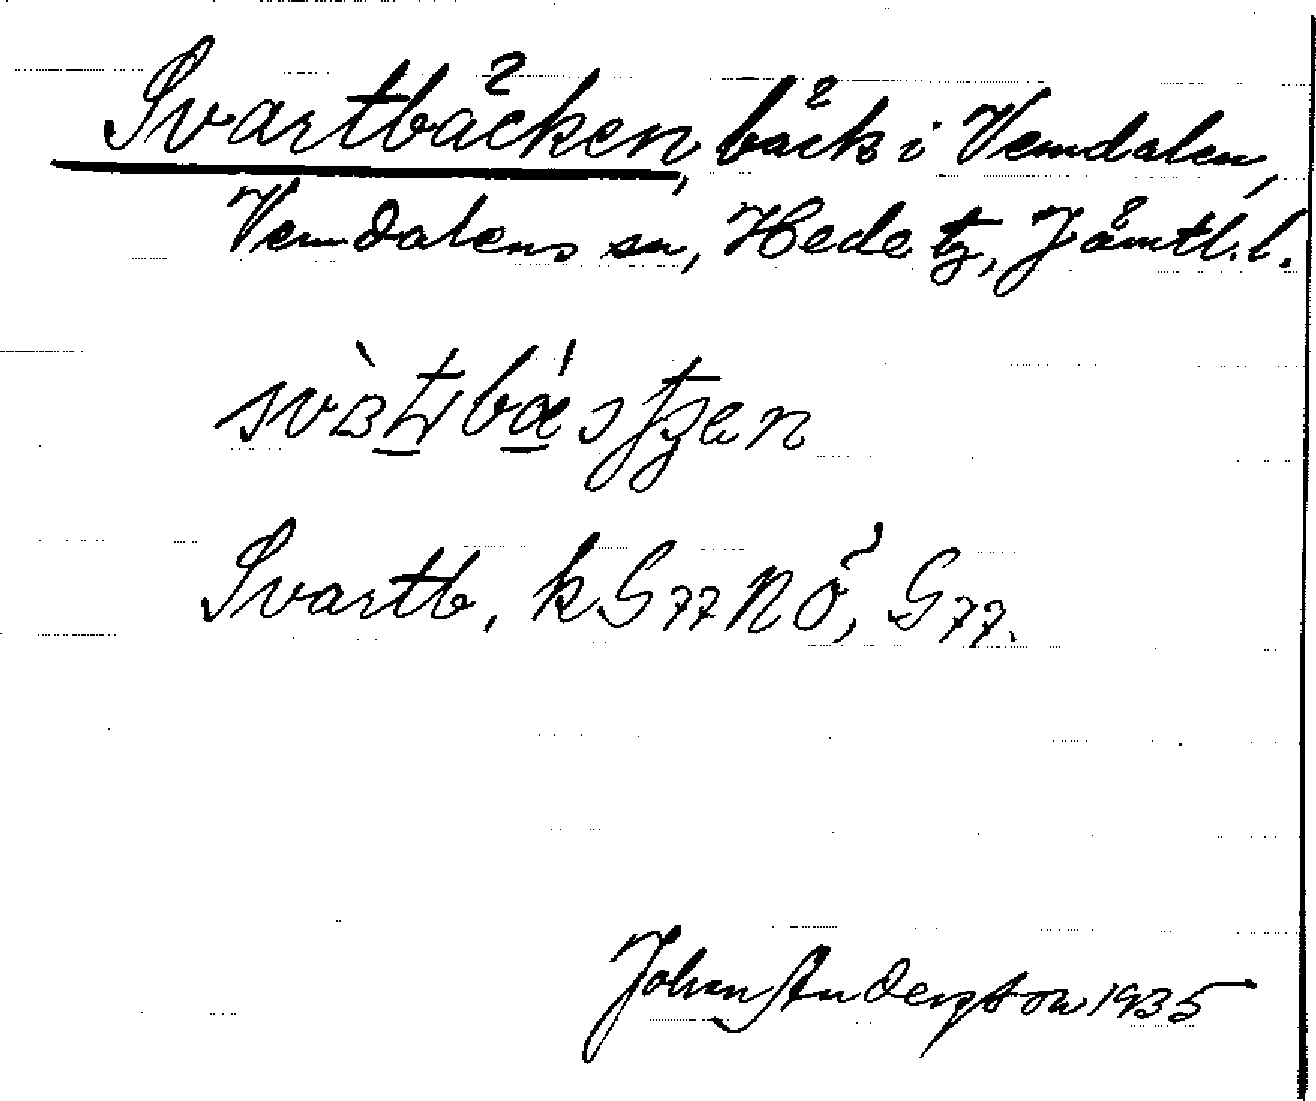 Svartbäcken, bäck i Vemdalen,
Vemdalens sn, Hede tg, Jämtl. l.
Svartb, k G77 NÖ, G77.
Johan Andersson 1935